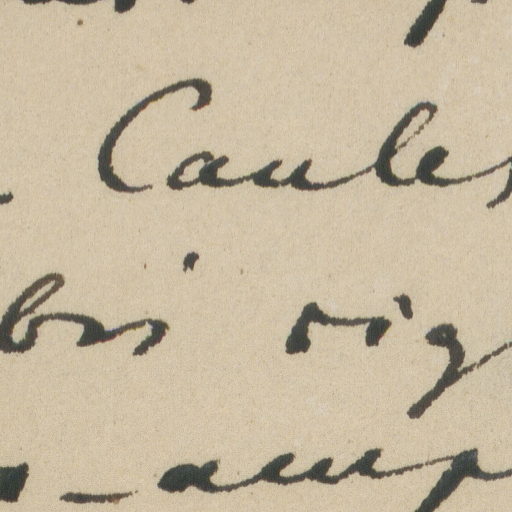 Caules
bis rig
- amp